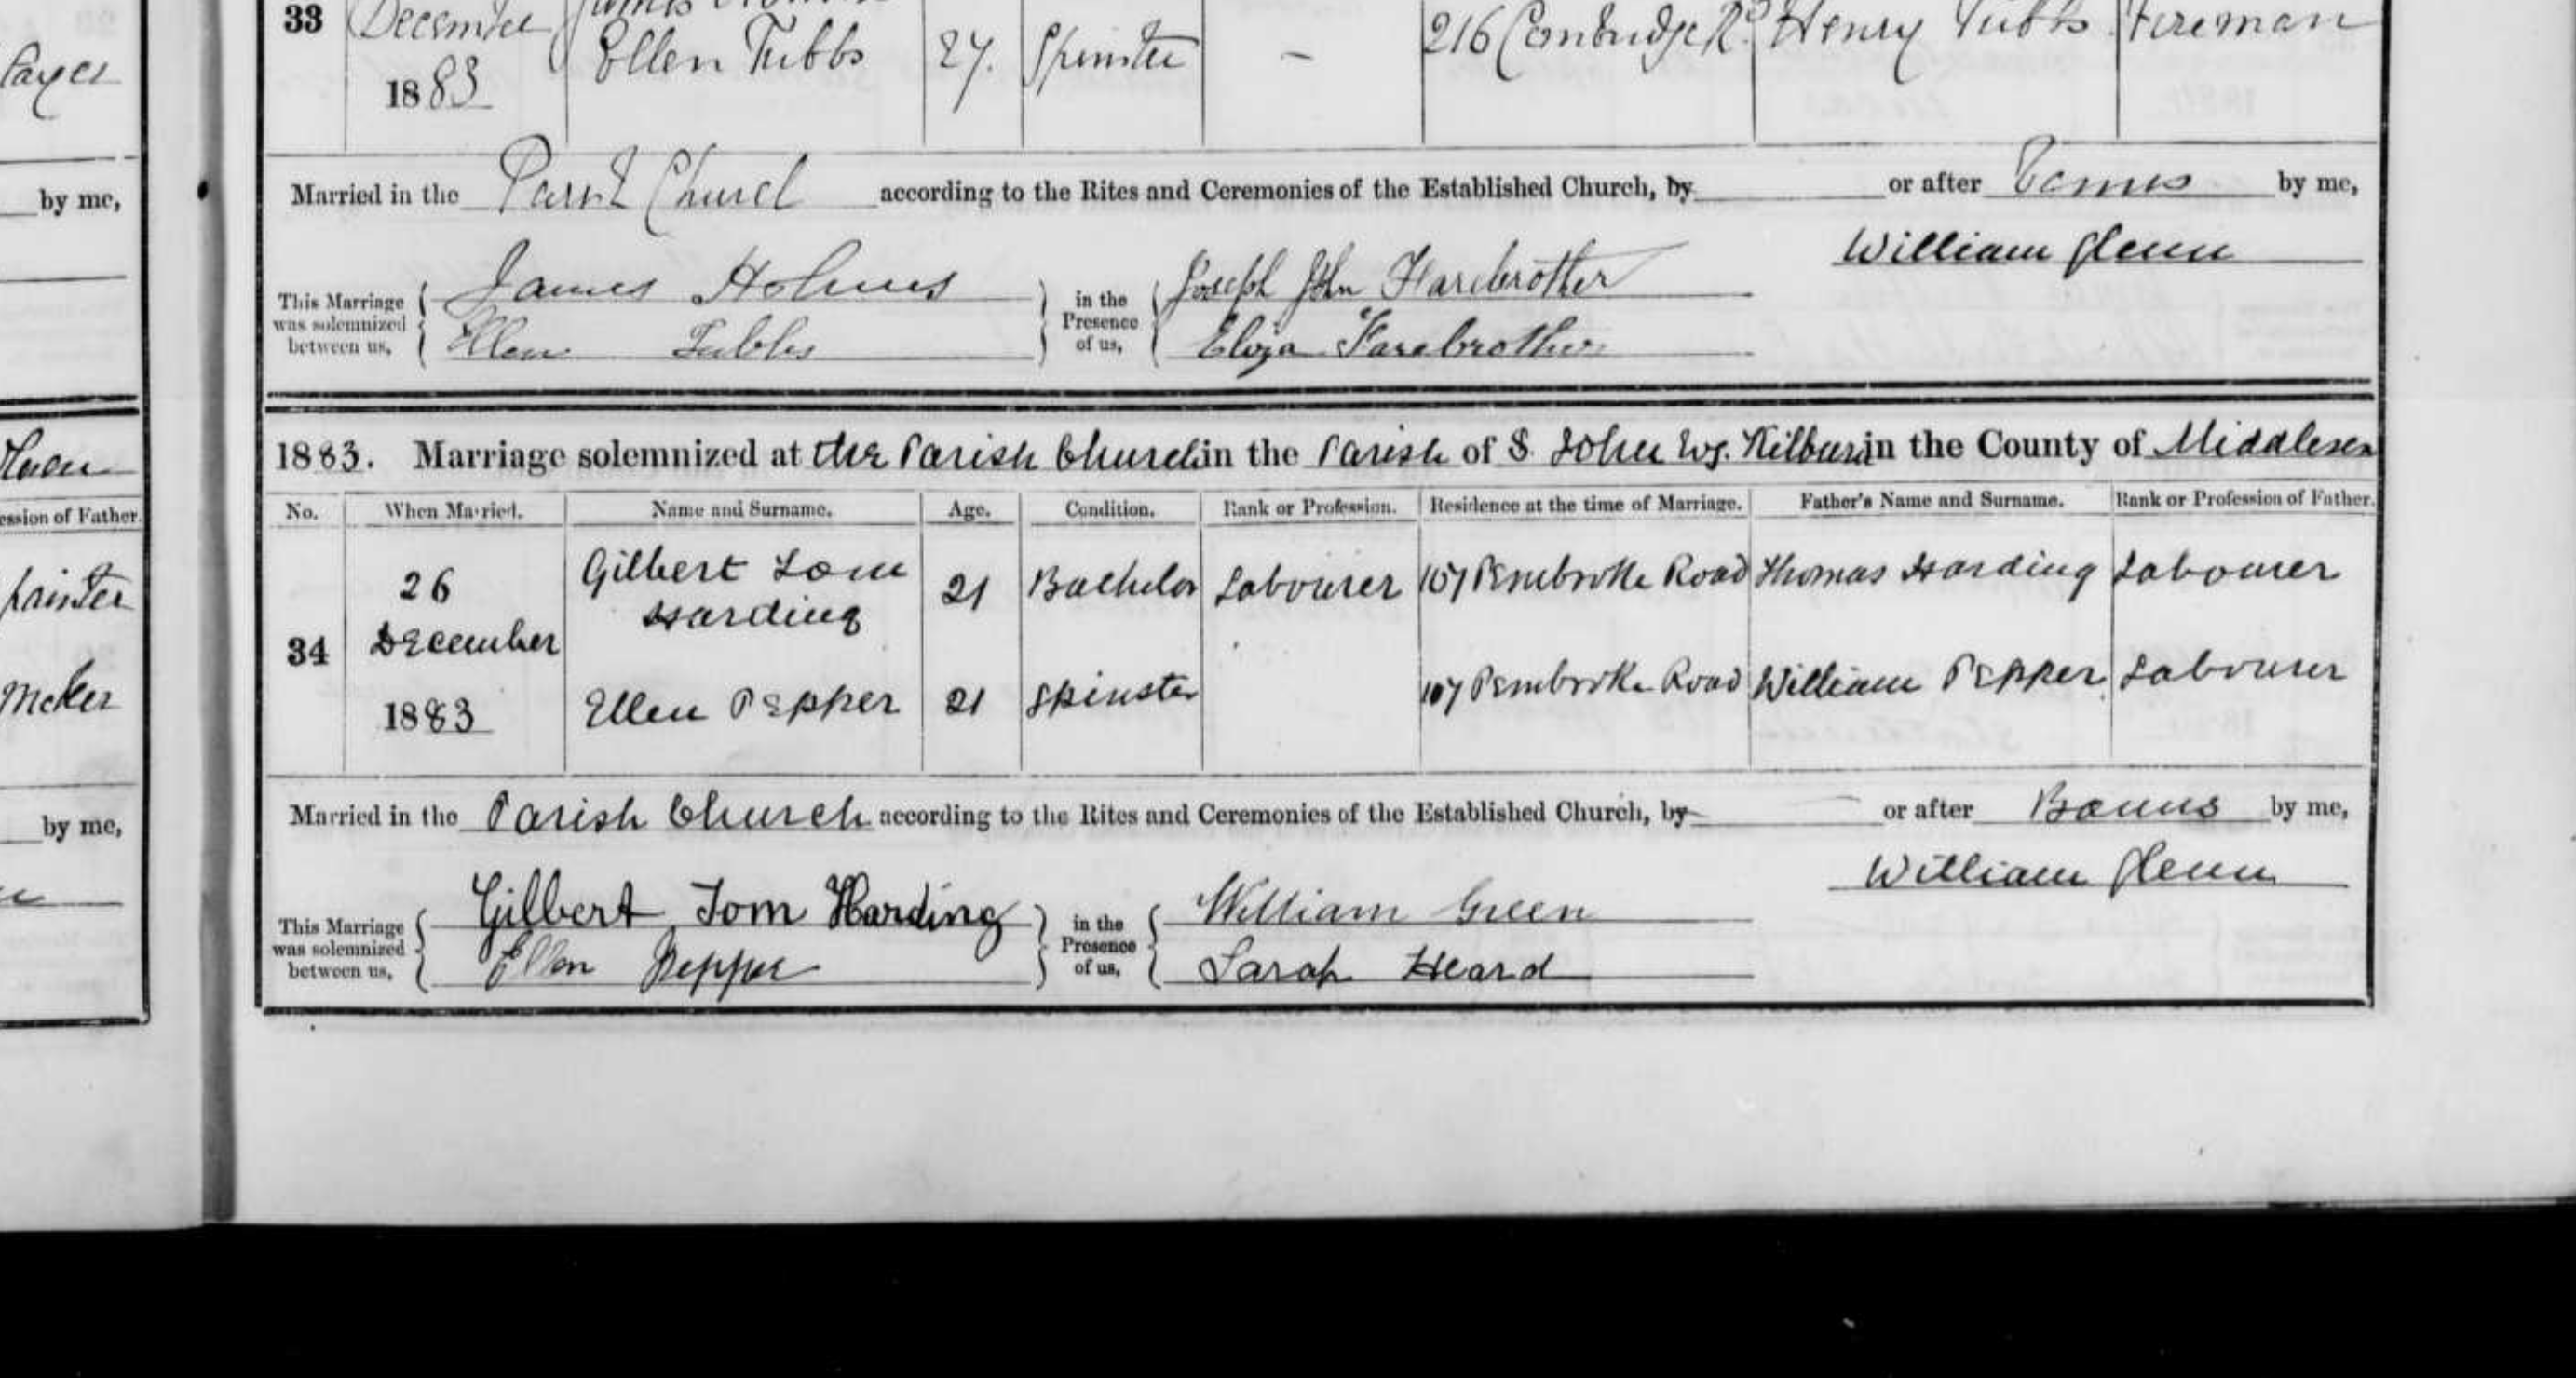 33 December
Ellen Tubbs 27. Spinster - 216 Cambridge Rd. Henry Tubbs Fireman
1883
by me,
Married in the Parish Church according to the Rites and Ceremonies of the Established Church, by or after Banns by me,
William Glenn
This Marriage was solemnized between us, James Holmes in the Presence of us, Joseph John Farebrother
Ellen Tubbs Eliza Farebrother
1883. Marriage solemnized at the Parish Church in the Parish of S. John Ev. Kilburn in the County of Middlesex
ession of Father.
No. When Married. Name and Surname. Age. Condition. Rank or Profession. Residence at the time of Marriage. Father's Name and Surname. Rank or Profession of Father.
26 Gilbert Tom Harding 21 Bachelor Labourer 107 Pembroke Road Thomas Harding Labourer
34 December
1883 Ellen Pepper 21 Spinster 107 Pembroke Road William Pepper Labourer
by me,
Married in the Parish Church according to the Rites and Ceremonies of the Established Church, by or after Banns by me,
William Glenn
This Marriage was solemnized between us, Gilbert Tom Harding in the Presence of us, William Green
Ellen Pepper Sarah Heard